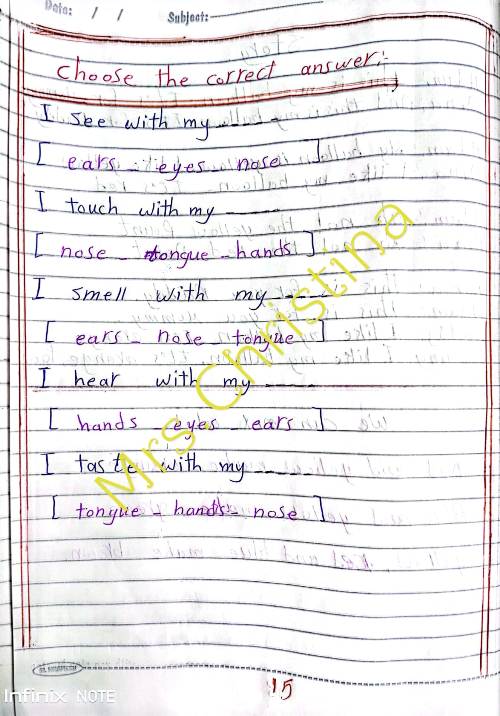 Date: / / Subject:
Choose the correct answer:-
I see with my -----
[ ears - eyes - nose ]
I touch with my -----
[ nose - tongue - hands ]
I smell with my -----
[ ears - nose - tongue ]
I hear with my -----
[ hands - eyes - ears ]
I taste with my -----
[ tongue - hands - nose ]
Mrs Christina
15
Infinix NOTE